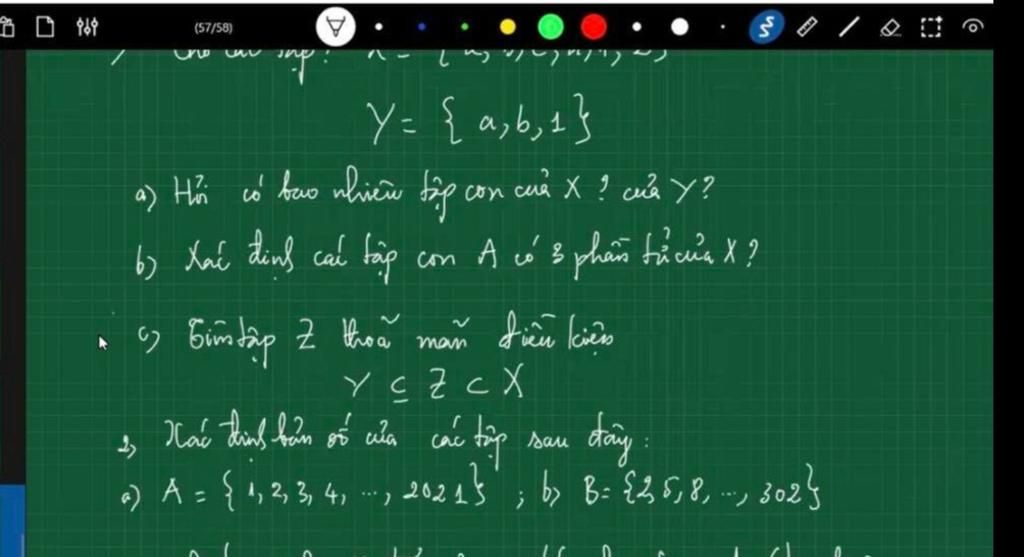 (57/58)
Y = { a, b, 1 }
a) Hỏi có bao nhiêu tập con của X ? của Y ?
b) Xác định các tập con A có 3 phần tử của X ?
c) Tìm tập Z thoả mãn điều kiện
Y ⊆ Z ⊂ X
2, Xác định bản số của các tập sau đây :
a) A = { 1, 2, 3, 4, ..., 2021 } ; b) B = {2, 5, 8, ..., 302}